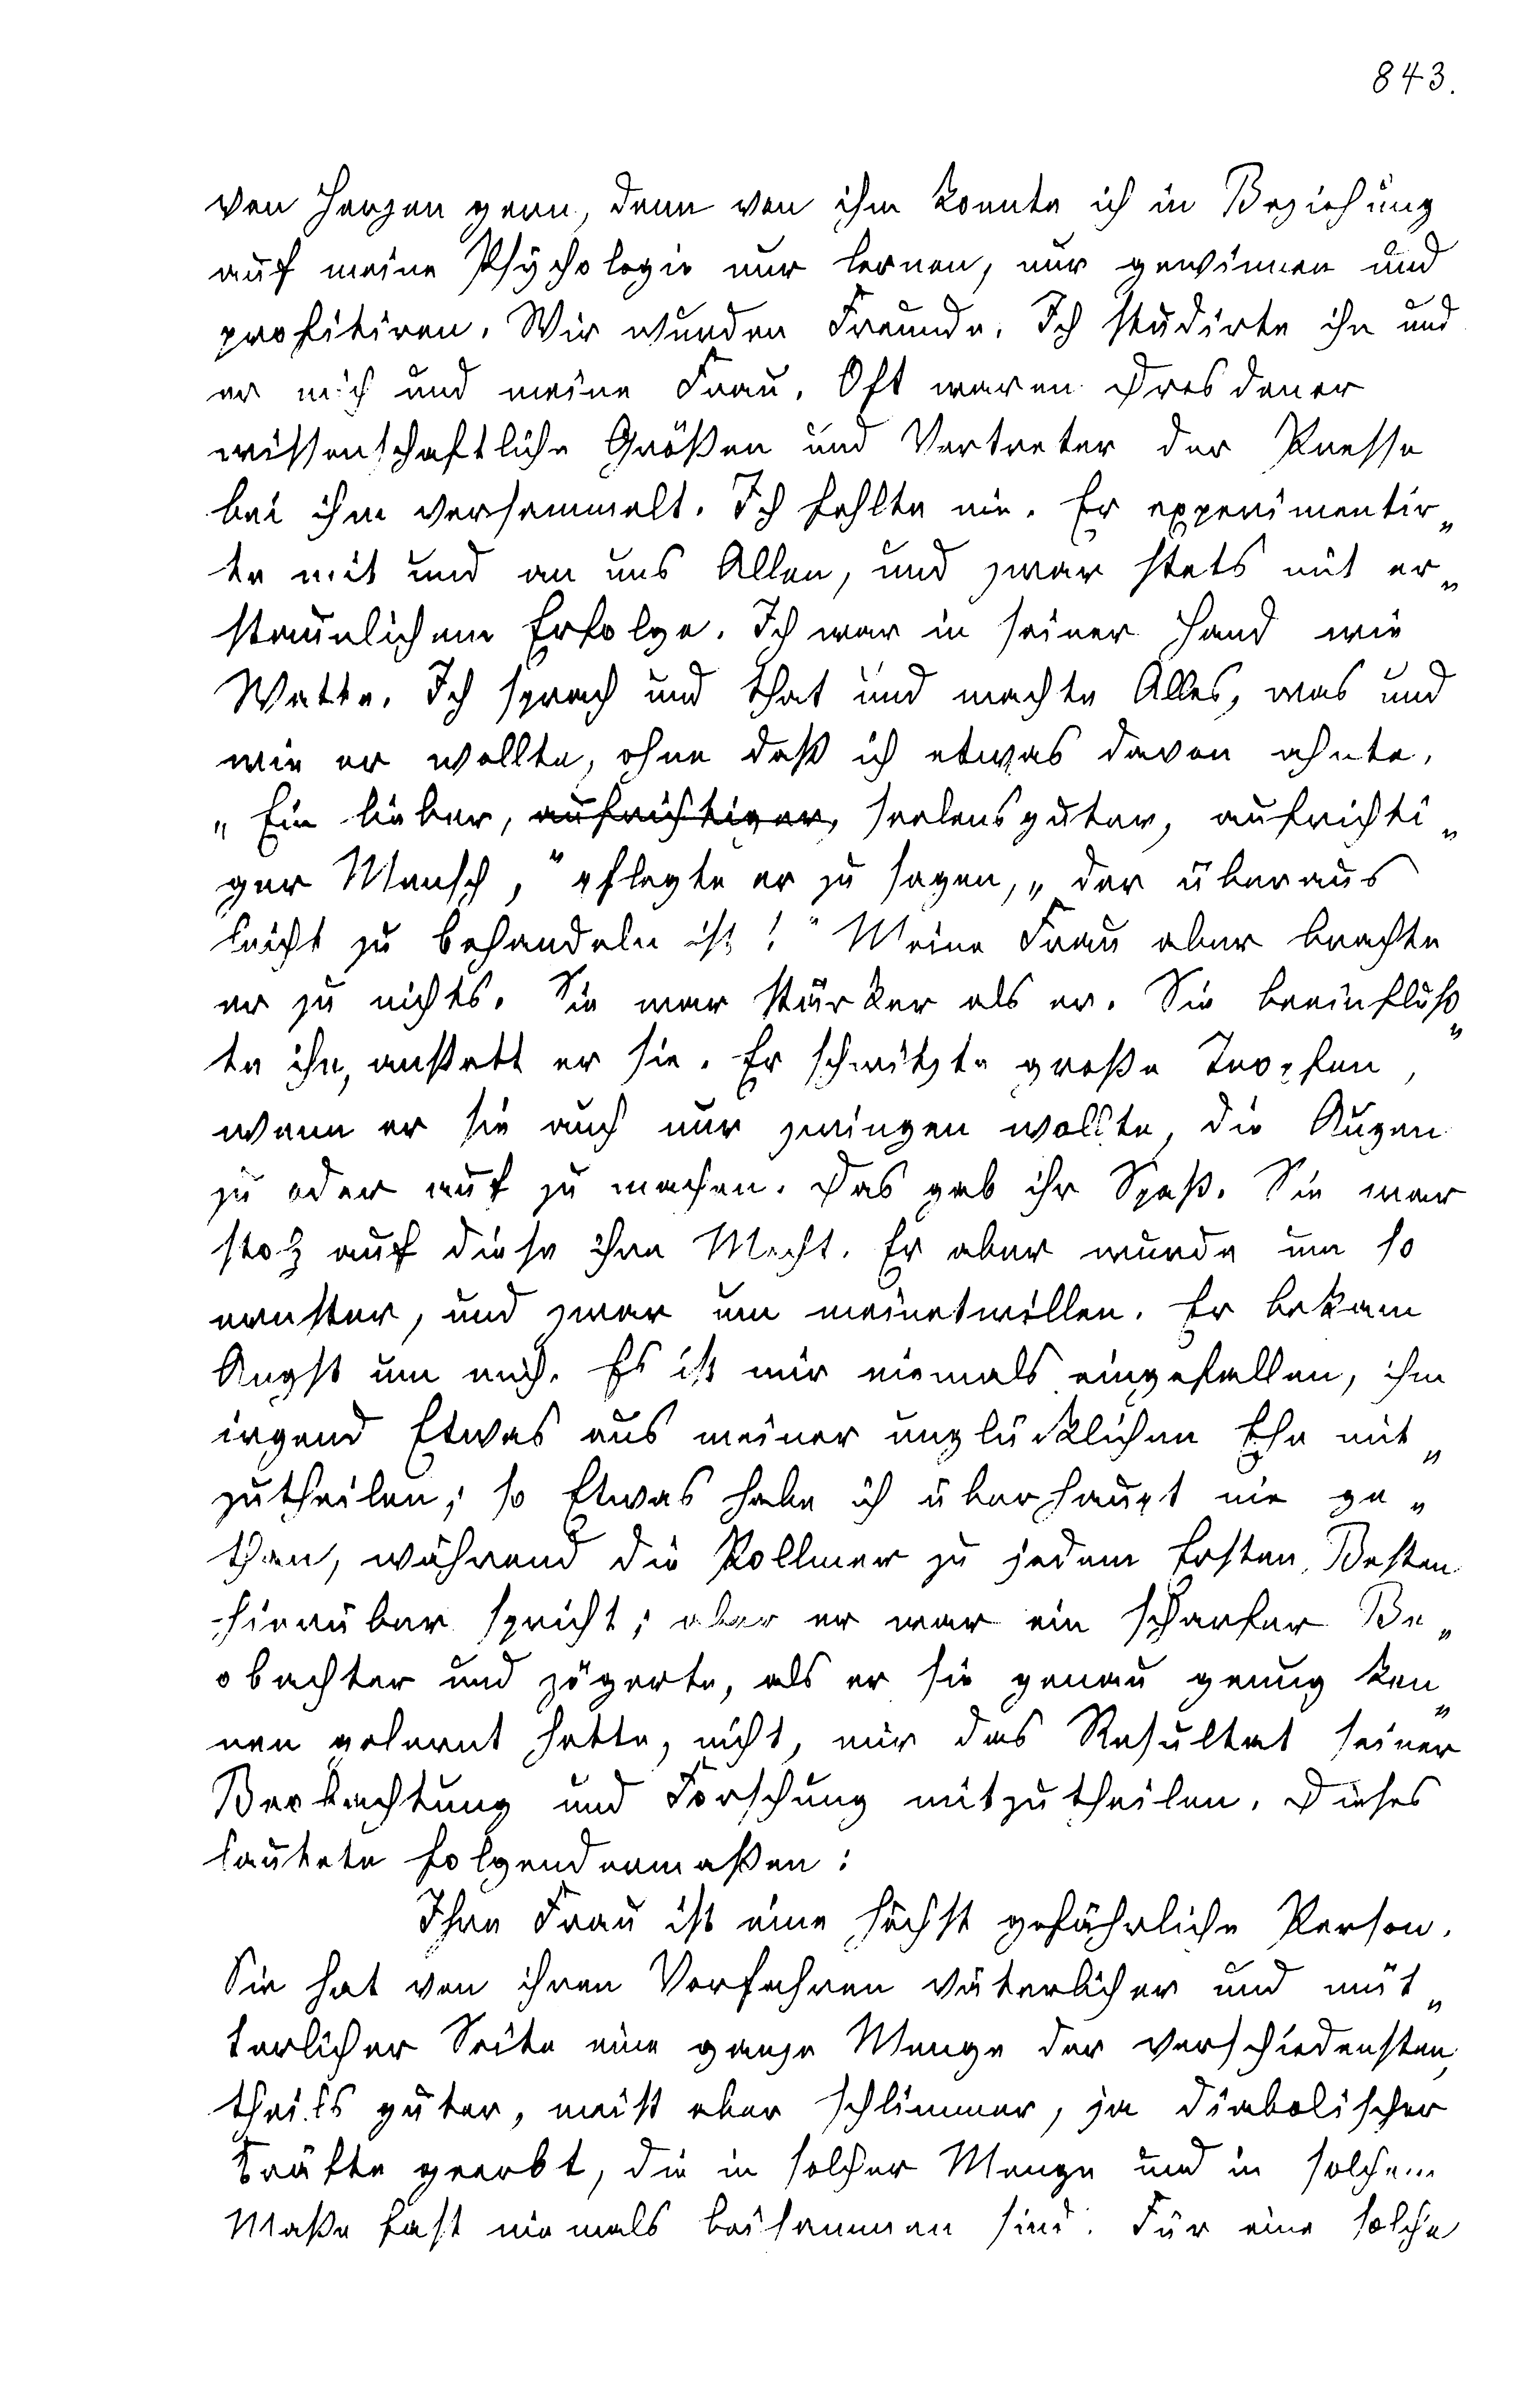 843.
von Herzen gern, denn von ihm konnte ich in Beziehung
auf meine Psychologie nur lernen, nur gewinnen und
profitiren. Wir wurden Freunde. Ich studirte ihn und
er mich und meine Frau. Oft waren Dresdener
wissenschaftliche Größen und Vertreter der Presse
bei ihm versammelt. Ich fehlte nie. Er experimentir„
te mit und an uns Allen, und zwar stets mit er„
staunlichem Erfolge. Ich war in seiner Hand wie
Watte. Ich sprach und that und machte Alles, was und
wie er wollte, ohne daß ich etwas davon ahnte.
„Ein lieber, aufrichtiger, seelensguter, aufrichti„
ger Mensch,“ pflegte er zu sagen, „der überaus
leicht zu behandeln ist!“ Meine Frau aber brachte
er zu nichts. Sie war stärker als er. Sie beeinfluß„
te ihn, anstatt er sie. Er schwitzte große Tropfen,
wenn er sie auch nur zwingen wollte, die Augen
zu oder auf zu machen. Das gab ihr Spaß. Sie war
stolz auf diese ihre Macht. Er aber wurde um so
ernster, und zwar um meinetwillen. Er bekam
Angst um mich. Es ist mir niemals eingefallen, ihm
irgend Etwas aus meiner unglücklichen Ehe mit„
zutheilen; so Etwas habe ich überhaupt nie ge„
than, während die Pollmer zu jedem Ersten, Besten
hierüber spricht; aber er war ein scharfer Be„
obachter und zögerte, als er sie genau genug ken„
nen gelernt hatte, nicht, mir das Resultat seiner
Beobachtung und Forschung mitzutheilen. Dieses
lautete folgendermaßen:
Ihre Frau ist eine höchst gefährliche Person.
Sie hat von ihren Vorfahren väterlicher und müt„
terlicher Seite eine ganze Menge der verschiedensten,
theils guter, meist aber schlimmer, ja diabolischer
Kräfte geerbt, die in solcher Menge und in solchem
Maße fast niemals beisammen sind. Für eine solche